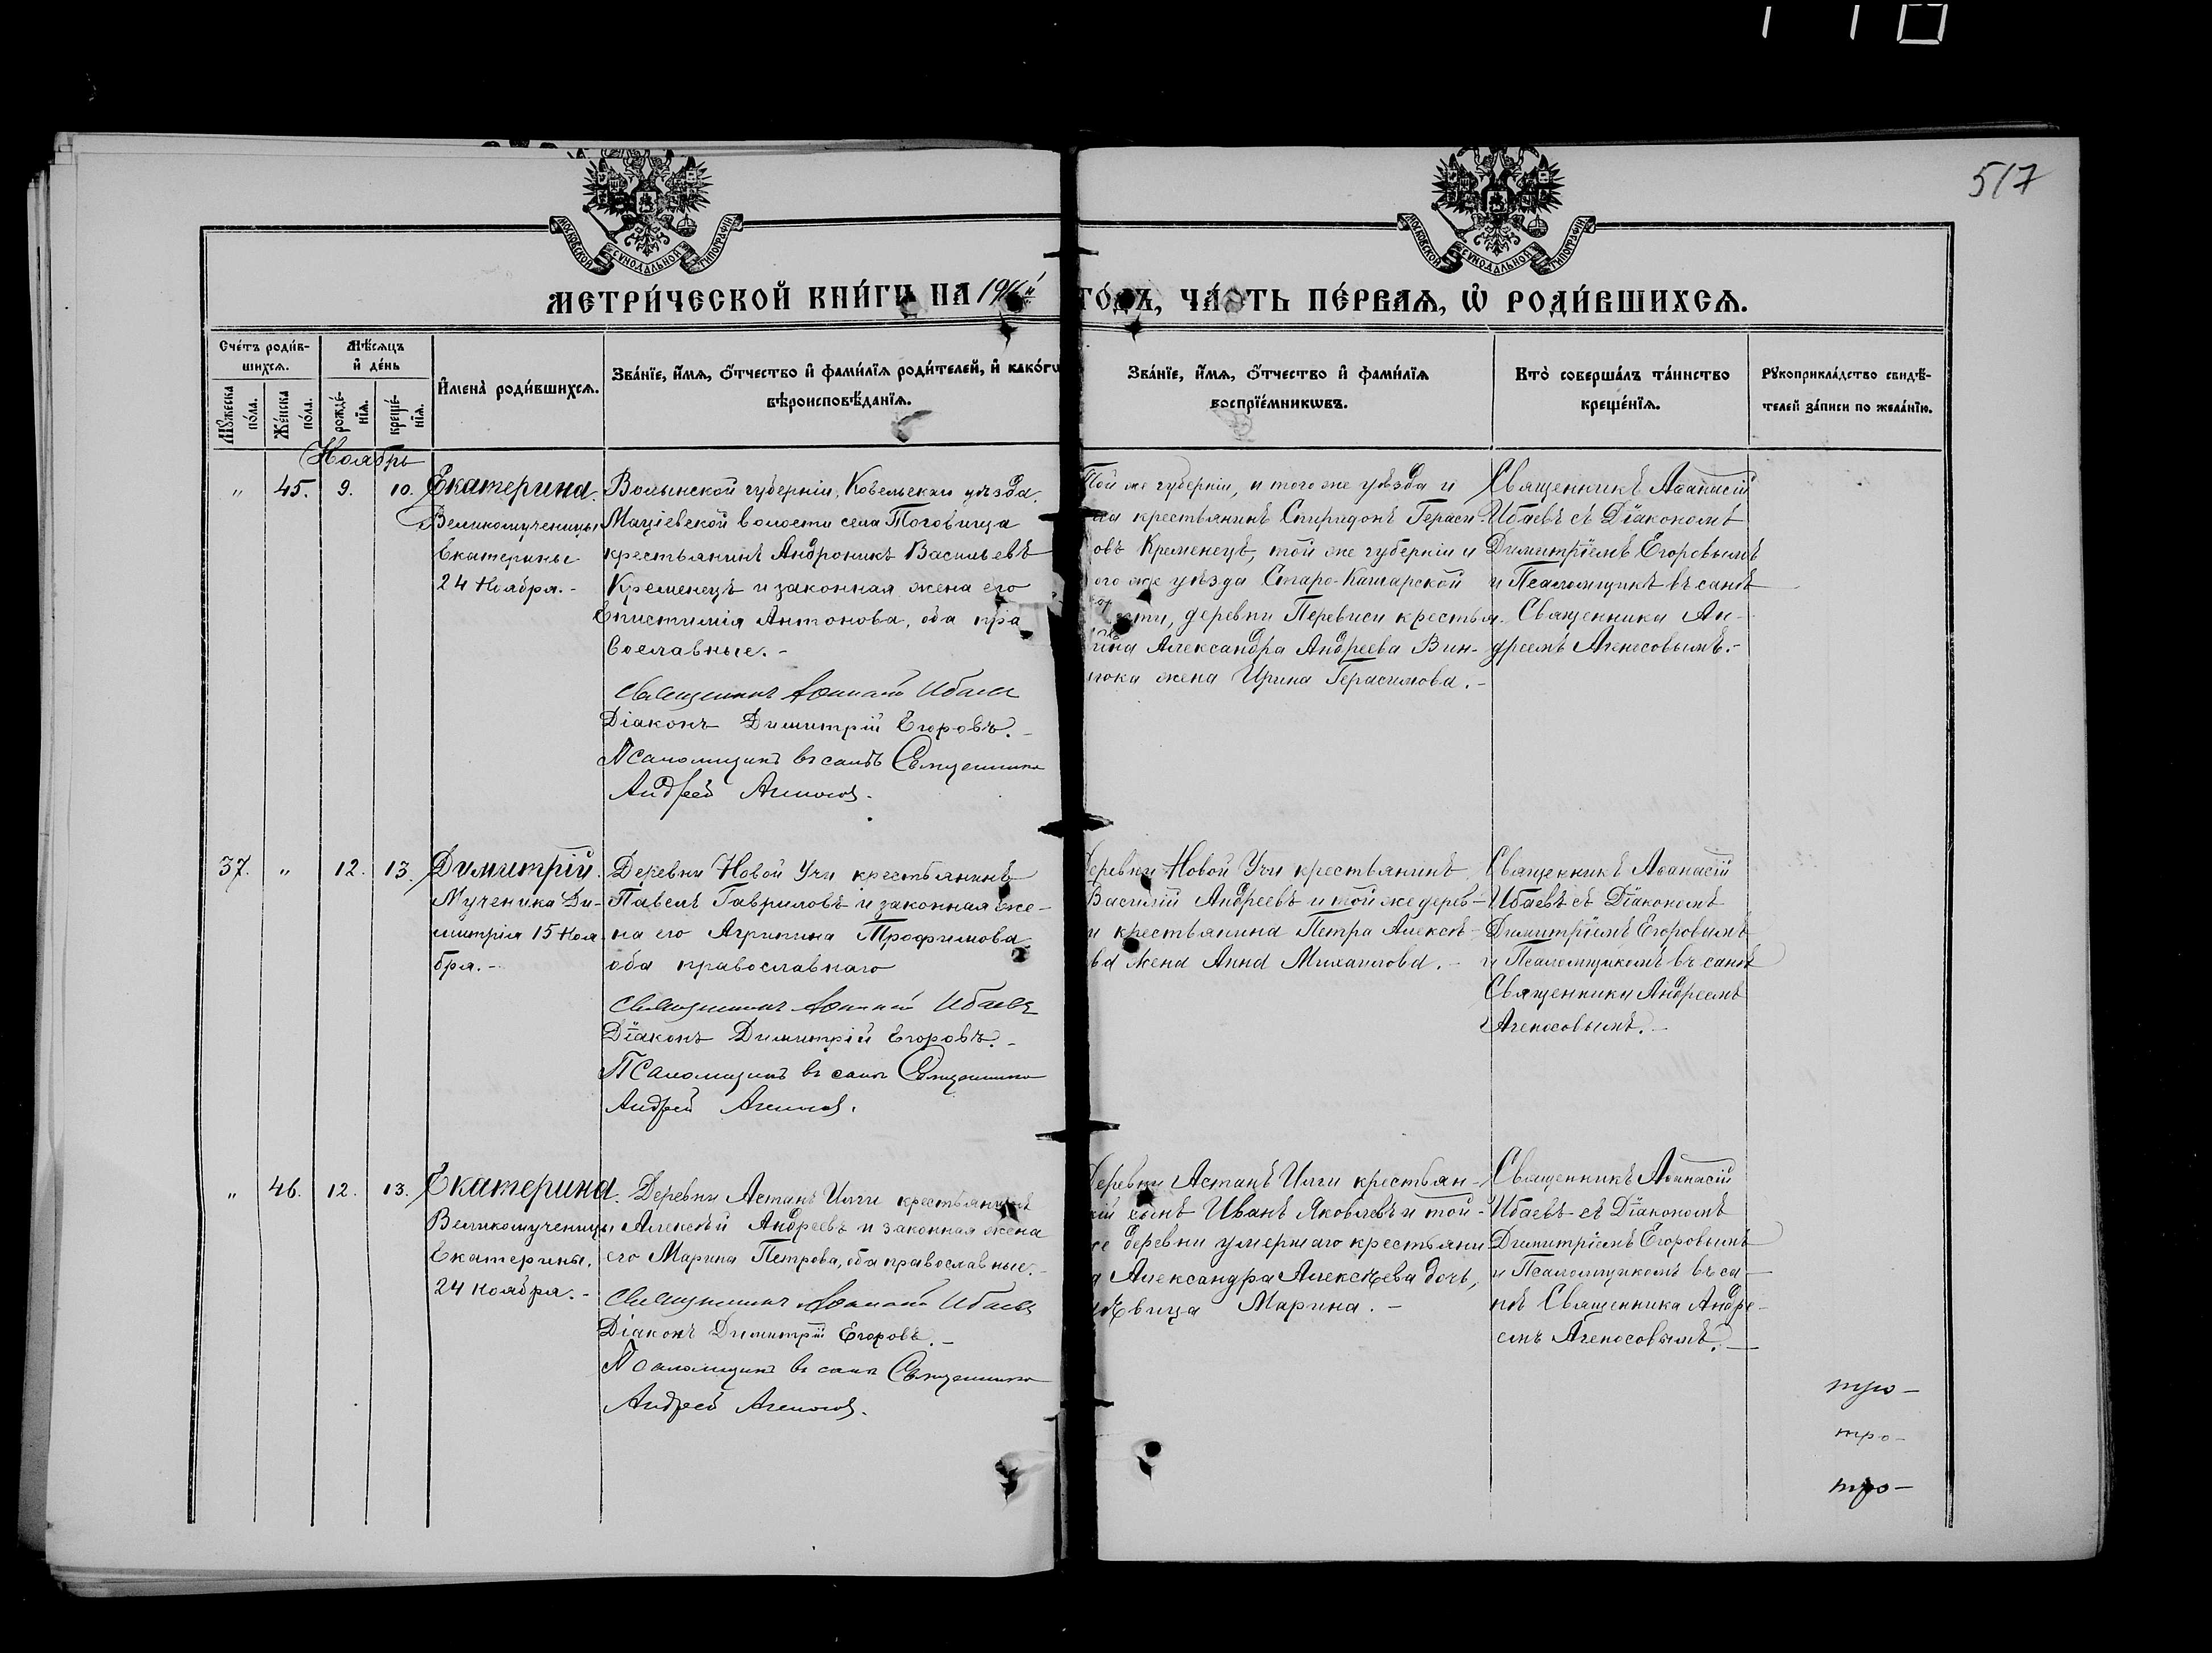 517
МОСКОВСКОЙ СѴНОДАЛЬНОЙ ТИПОГРАФІИ
МОСКОВСКОЙ СѴНОДАЛЬНОЙ ТИПОГРАФІИ
МЕТРИ́ЧЕСКОЙ КНИ́ГИ НА 1916й ГО́ДЪ, ЧА́СТЬ ПЕ́РВАЯ, Ѡ РОДИ́ВШИХСЯ.
Сче́тъ роди́в-
шихся.
Мѣ́сяцъ
и҆ де́нь
Мꙋ́жеска по́ла.
Же́нска по́ла.
рожде́-нїя.
креще́-нїя.
И҆мена̀ роди́вшихся.
Зва́нїе, и҆́мя, ѻ҆́тчество и҆ фами́лїя роди́телей, и҆ како́гѡ
вѣроисповѣ́данїя.
Зва́нїе, и҆́мя, ѻ҆́тчество и҆ фами́лїя
воспрїе́мникѡвъ.
Кто̀ соверша́лъ та́инство
креще́нїя.
Рꙋкоприкла́дство свидѣ́-
телей за́писи по жела́нїю.
Ноябрь
" 45. 9. 10.
Екатерина.
Великомученицы
Екатерины
24 Ноября.-
Волынской губерніи, Ковельскаи уѣзда.
Маціевской волости села Тоговища
крестьянинъ Андроникъ Васильевъ
Кременецъ и законная жена его
Епистимія Антонова, оба пра
вославные.-
Священникъ Аѳанасій Ибаевъ
Діаконъ Димитрій Егоровъ.-
Псаломщикъ въ санѣ Священника
Андрей Агеносовъ.
Той же губерніи, и того же уѣзда и
крестьянинъ Спиридонъ Гераси-
овъ Кременецъ, той же губерніи и
ого же уѣзда Старо-Кашарской
ости, деревни Перевиси крестья-
нина Александра Андреева Вин-
нюка жена Ирина Герасимова.-
Священникъ Аѳанасій
Ибаевъ съ Діакономъ
Димитріемъ Егоровымъ
и Псаломщикъ въ санѣ
Священника Ан-
дреемъ Агеносовымъ.-
37. " 12. 13.
Димитрій.
Мученика Ди-
митрія 15 Ноя
бря.-
Деревни Новой Учи крестьянинъ
Павелъ Гавриловъ и законная же-
на его Агрипина Трофимова
оба православнаго
Священникъ Аѳанасій Ибаевъ
Діаконъ Димитрій Егоровъ.-
Псаломщикъ въ санѣ Священника
Андрей Агеносовъ.
Деревни Новой Учи крестьянинъ
Василій Андреевъ и той же дерев-
и крестьянина Петра Алексѣ-
ва жена Анна Михаилова.-
Священникъ Аѳанасій
Ибаевъ съ Діакономъ
Димитріемъ Егоровымъ
и Псаломщикомъ въ санѣ
Священника Андреемъ
Агеносовымъ.-
" 46. 12. 13.
Екатерина.
Великомученицы
Екатерины.
24 ноября.-
Деревни Астанъ Илги крестьянинъ
Алексѣй Андреевъ и законная жена
его Марина Петрова, оба православные.-
Священникъ Аѳанасій Ибаевъ
Діаконъ Димитрій Егоровъ.-
Псаломщикъ въ санѣ Священника
Андрей Агеносовъ.
Деревни Астанъ Илги крестьян-
кій сынъ Иванъ Яковлевъ и той-
же деревни умершаго крестьяни
а Александра Алексѣева дочь,
дѣвица Марина.-
Священникъ Аѳанасій
Ибаевъ съ Діакономъ
Димитріемъ Егоровымъ
и Псаломщикомъ въ са-
нѣ Священника Андре-
емъ Агеносовымъ.-
тро-
тро-
тро-